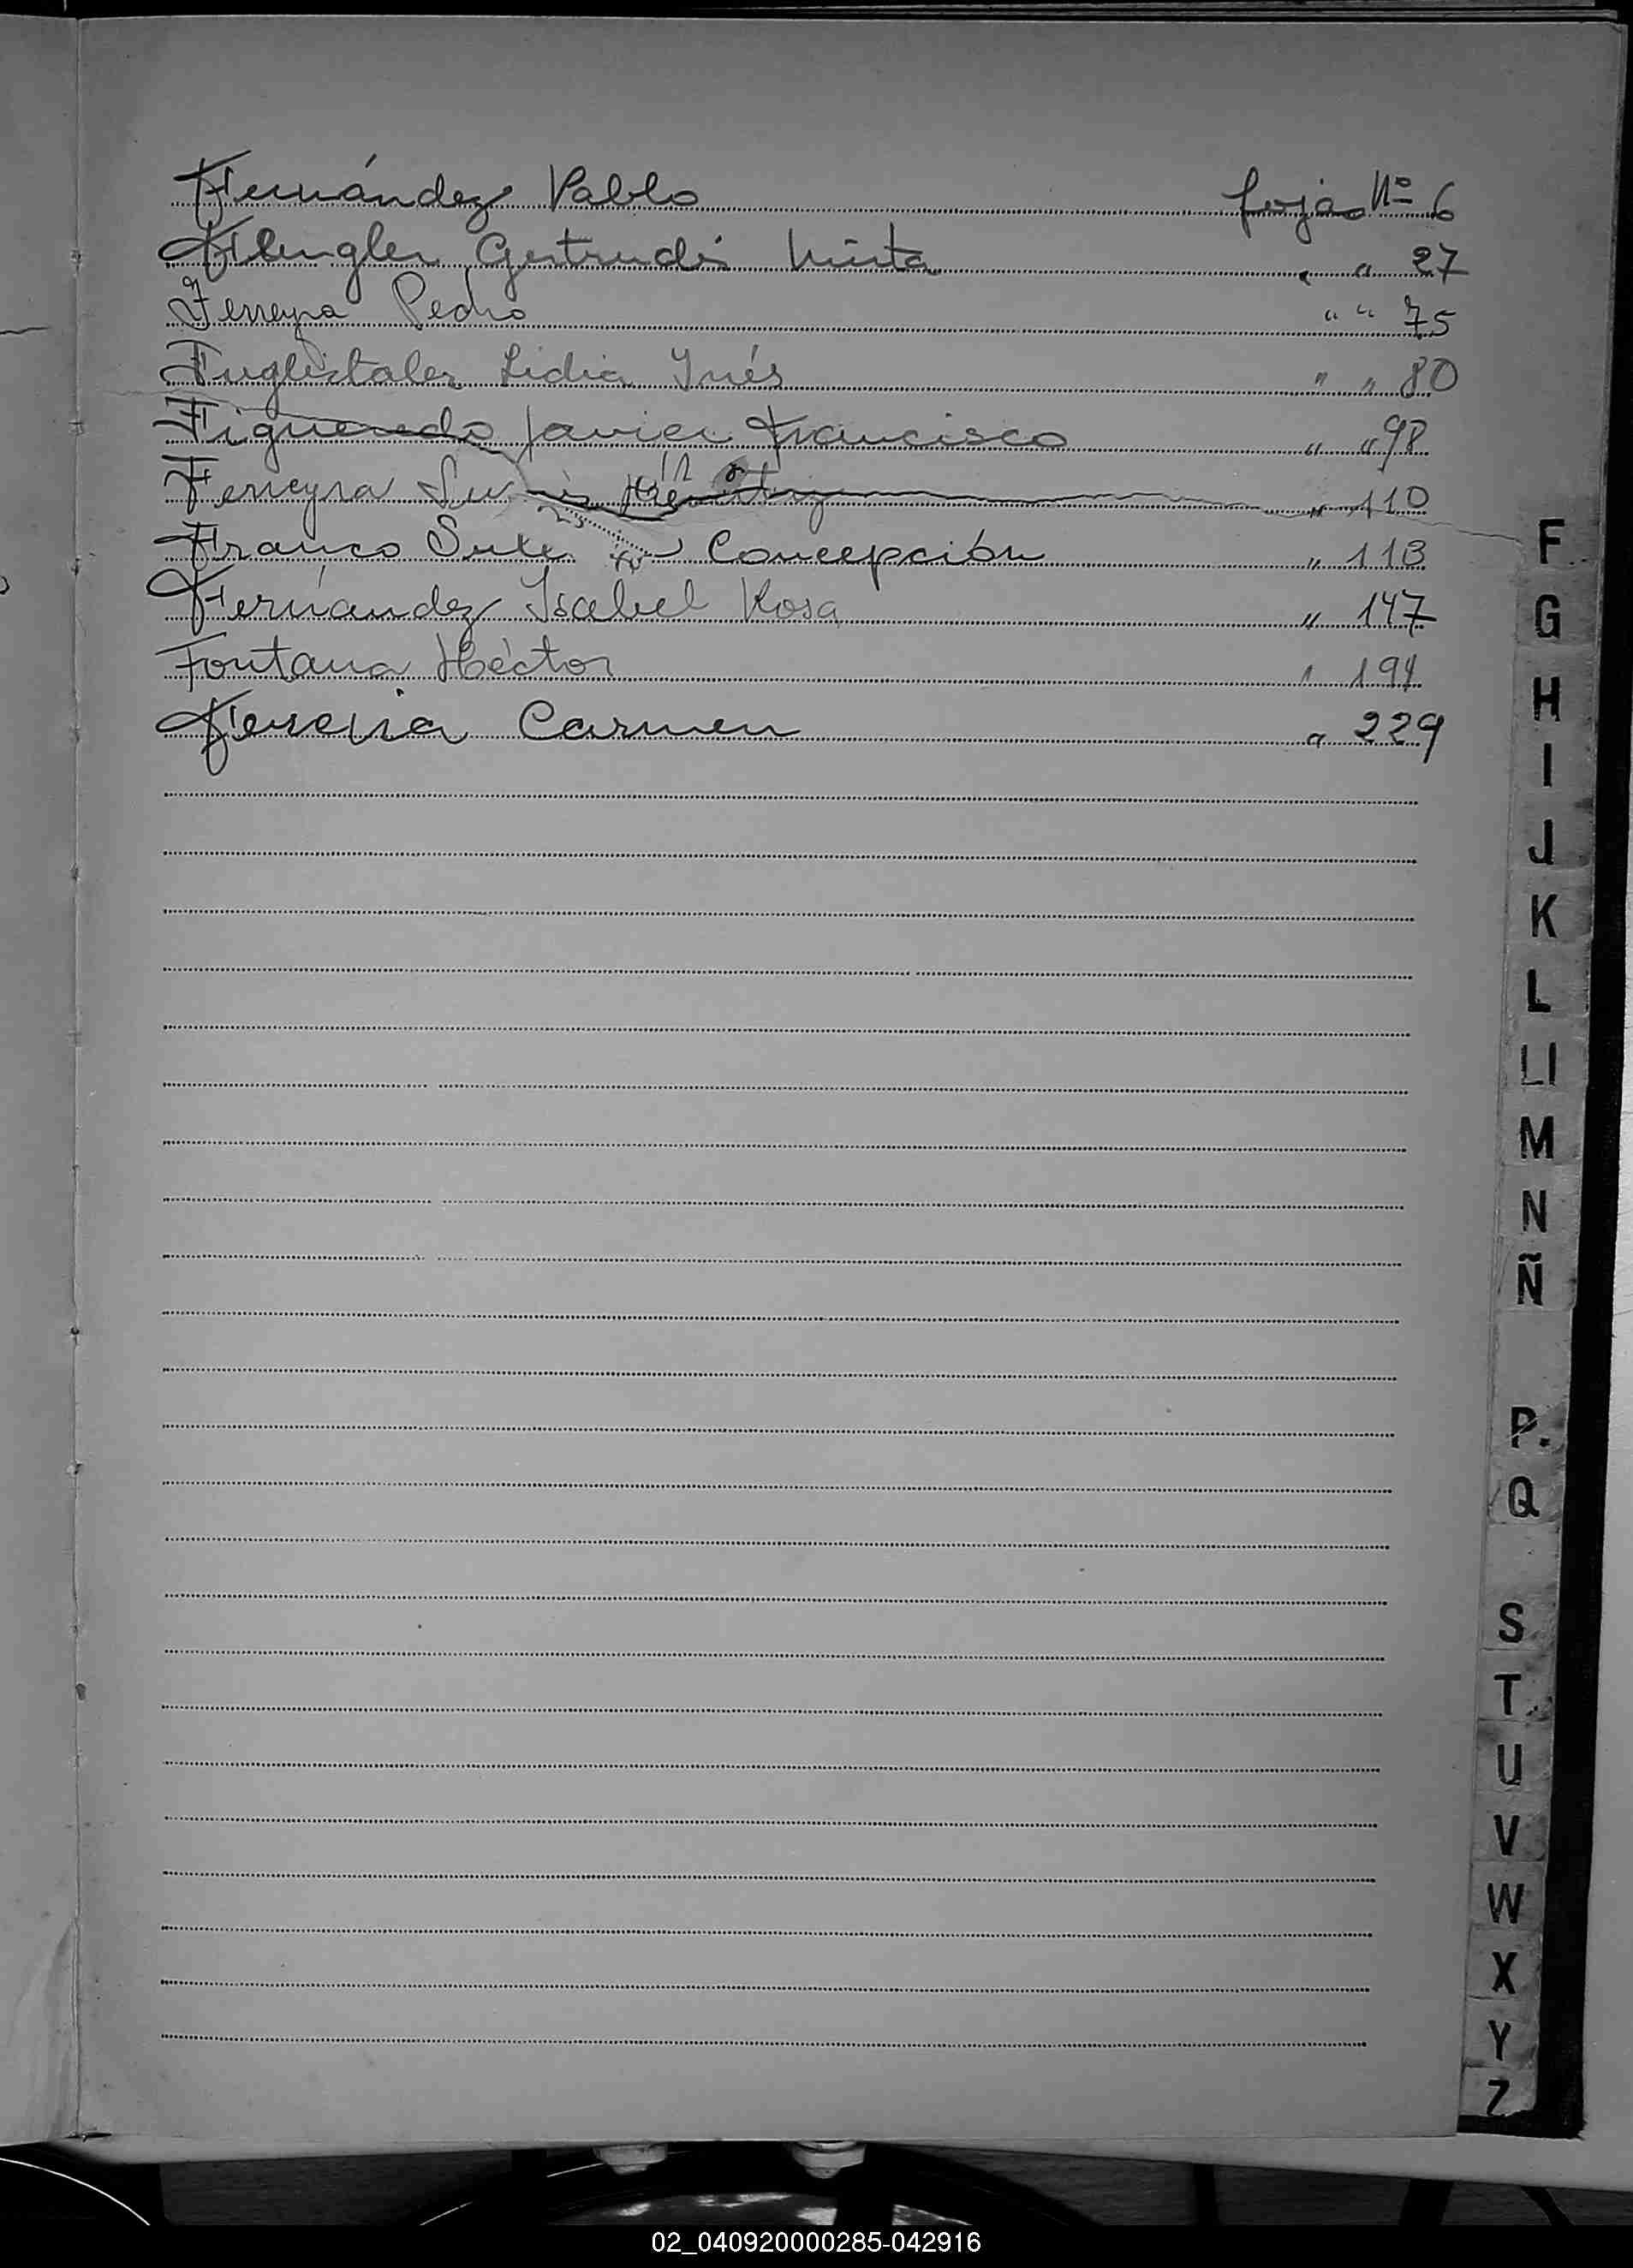 Fernández Pablo fojas Nº 6
Flengler Gertrudis Mirta " " 27
Ferreyra Pedro " " 75
Fuglistaler Lidia Inés " " 80
Figueredo Javier Francisco " " 98
Ferreyra " 110
Franco Concepción " 113
Fernández Isabel Rosa " 147
Fontana Héctor " 194
Ferreyra Carmen " 229
F
G
H
I
J
K
L
Ll
M
N
Ñ
P.
Q
S
T
U
V
W
X
Y
Z
02_040920000285-042916